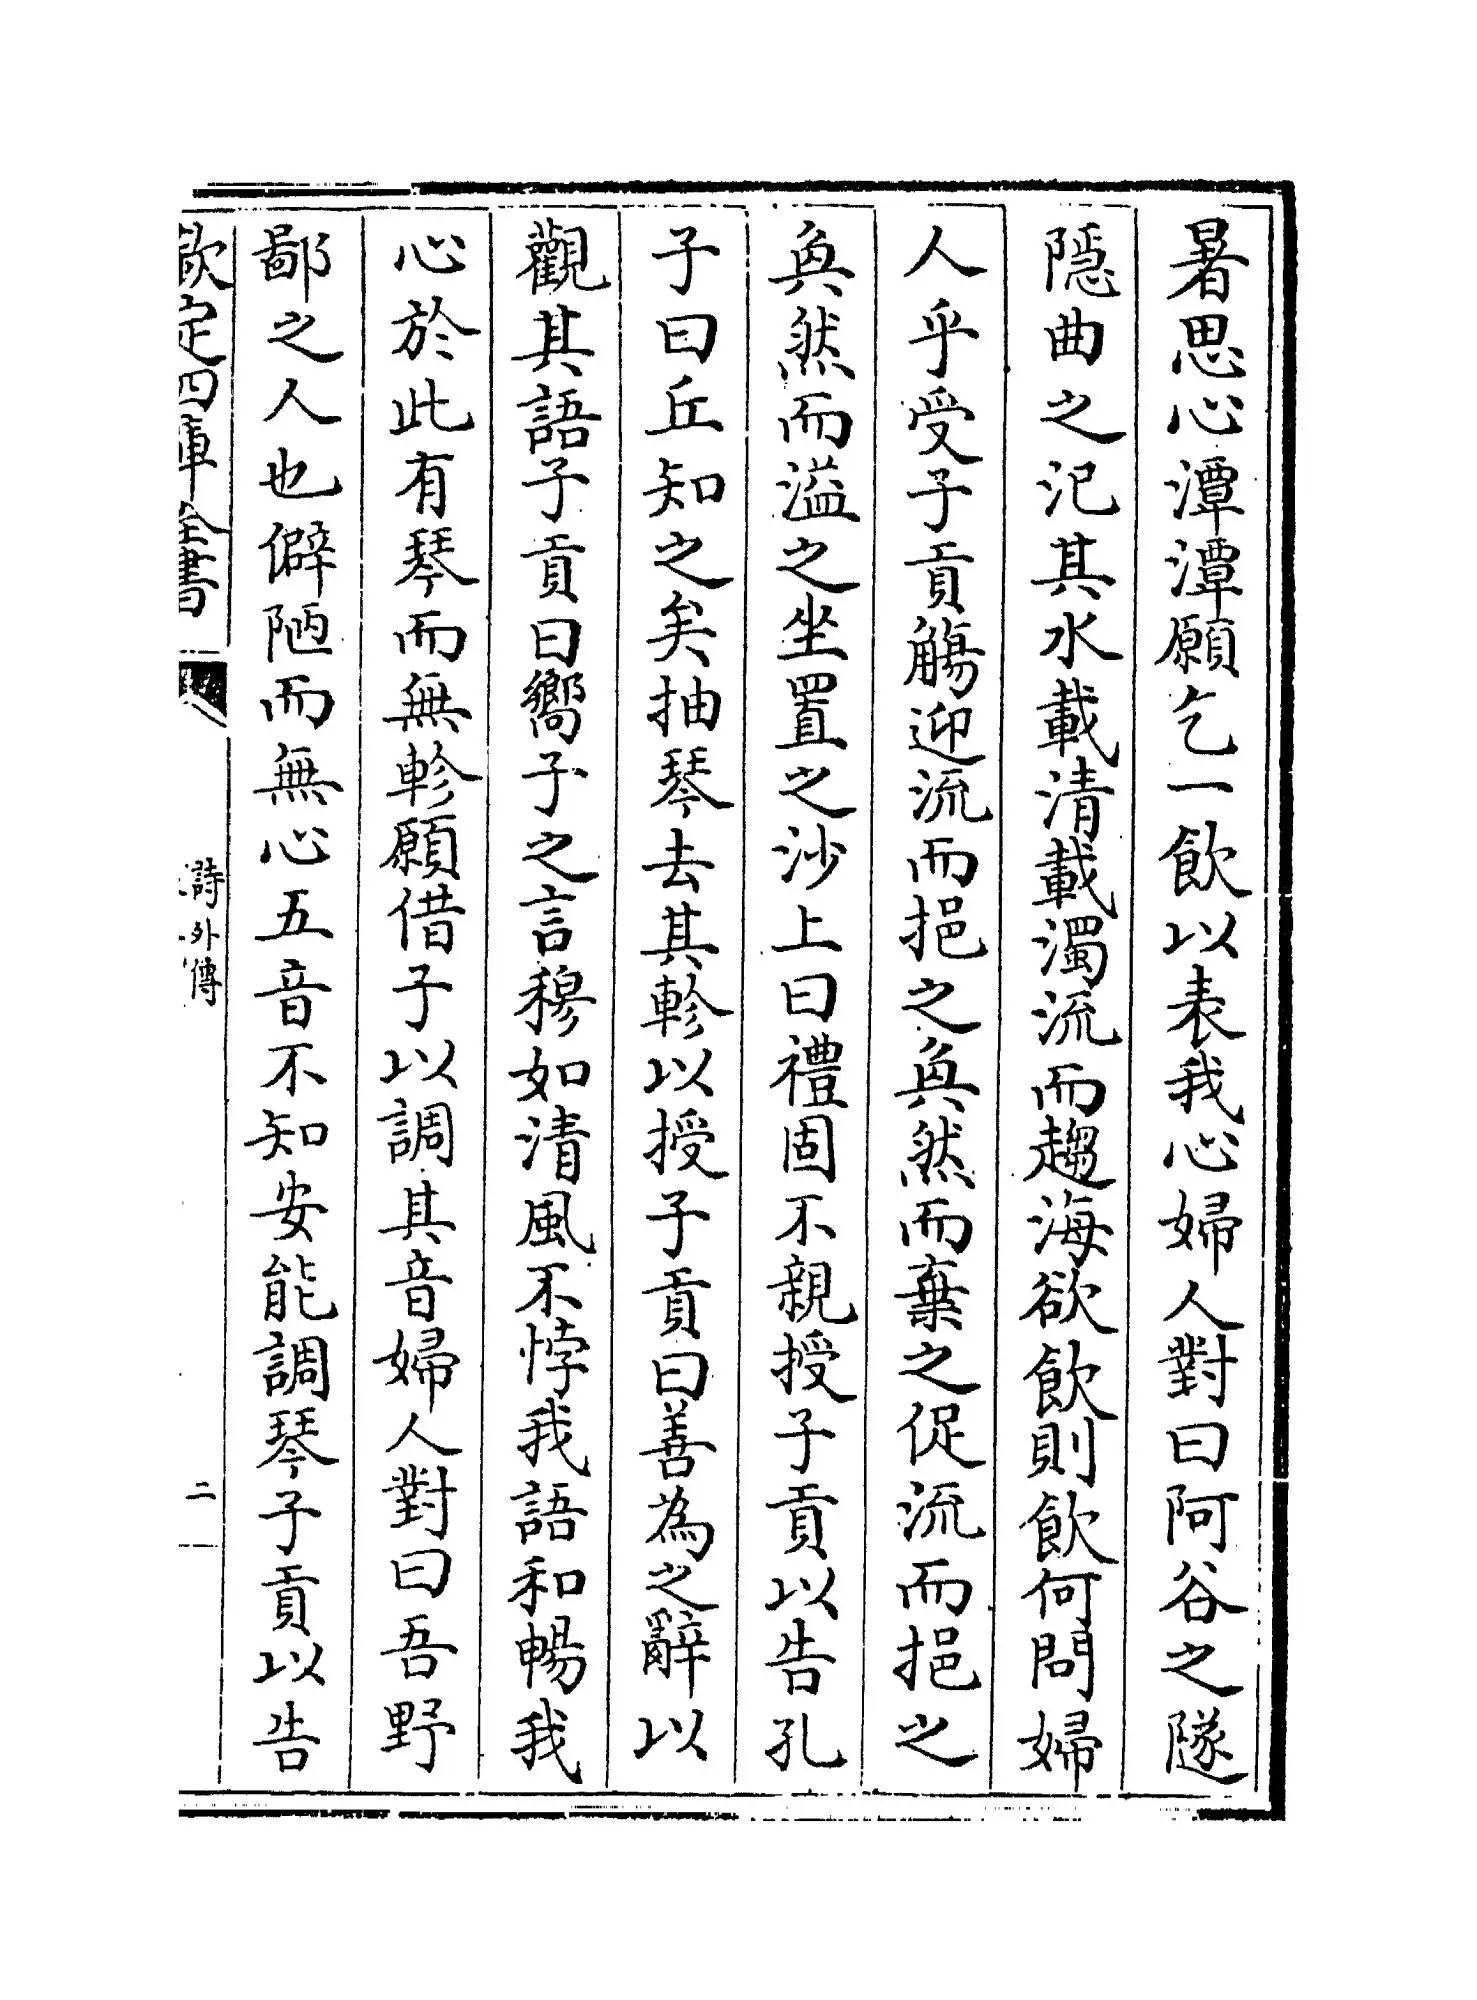 暑思心潭潭願乞一飲以表我心婦人對曰阿谷之隧
隱曲之汜其水載清載濁流而趨海欲飲則飲何問婦
人乎受子貢觴迎流而挹之奐然而棄之促流而挹之
奐然而溢之坐置之沙上曰禮固不親授子貢以告孔
子曰丘知之矣抽琴去其軫以授子貢曰善為之辭以
觀其語子貢曰嚮子之言穆如清風不悖我語和暢我
心於此有琴而無軫願借子以調其音婦人對曰吾野
鄙之人也僻陋而無心五音不知安能調琴子貢以告
欽定四庫全書
詩外傳
二